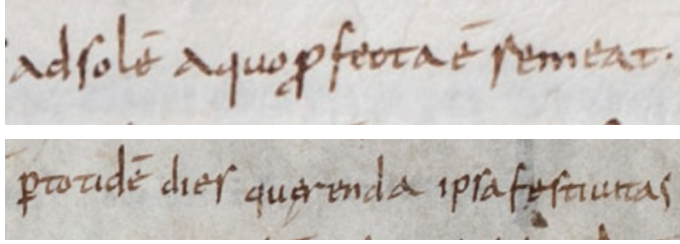 ad solē a quo ꝓfecta ē remeat.
ꝑ totidē dies quęrenda ipsa festiuitas